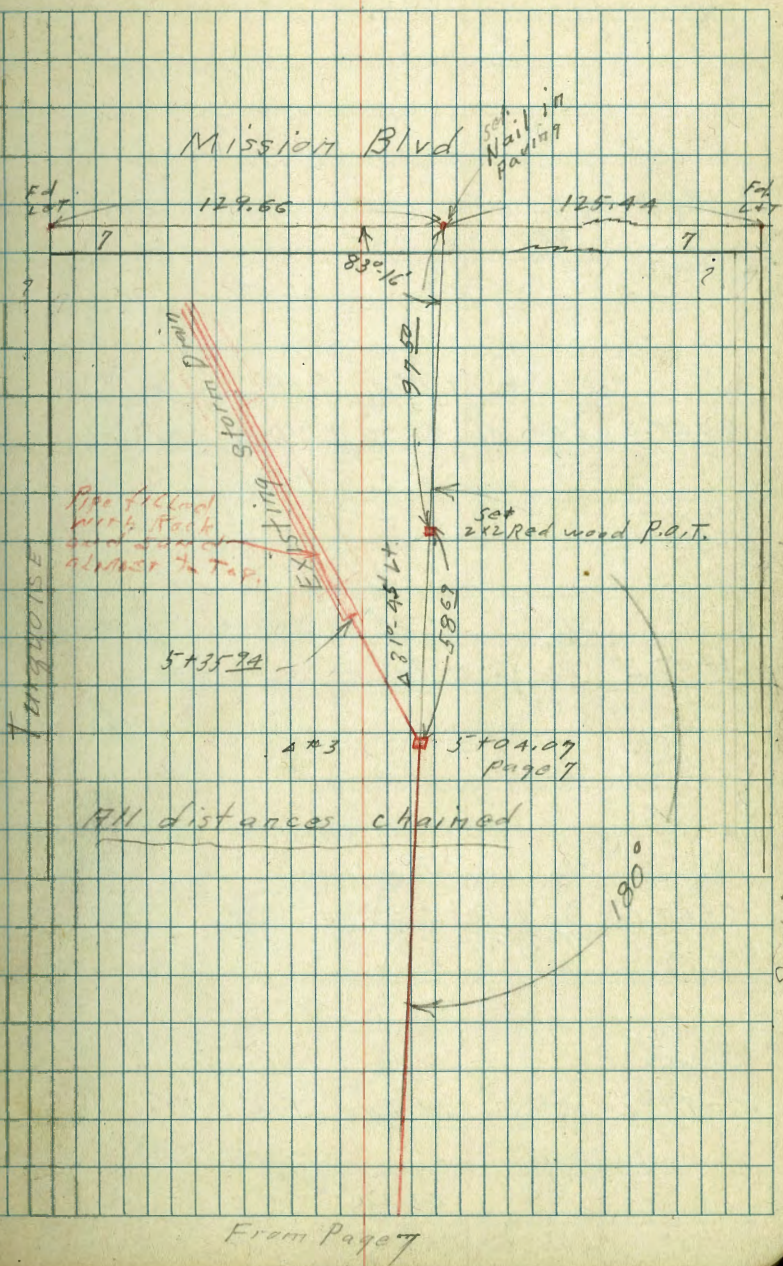 Mission Blvd
Set
Nail in
paving
Fd
L&T
129.66
125.44
Fd.
L&T
7
7
83°-16'
?
?
97 50
Existing Storm Drain
Pipe filled
with Rock
and Sand
almost to Top.
Set
2x2 Red wood P.O.T.
Δ 31°-45' Lt.
58 69
Turquoise
5+35 94
Δ #3
5+04.07
page 7
All distances chained
180°
From Page 7